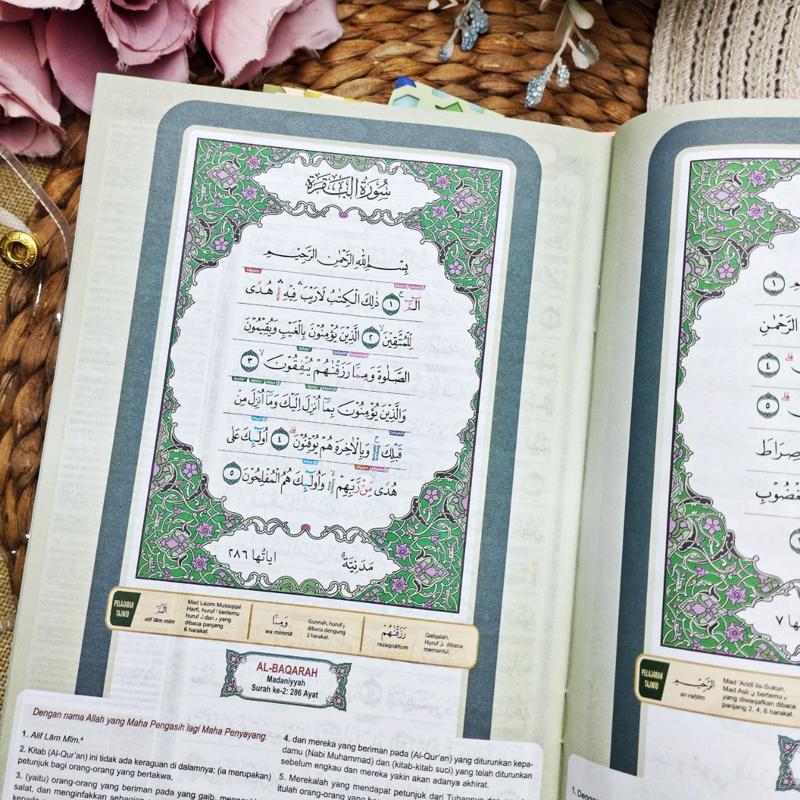 سُورَةُ الْبَقَرَةِ
بِسْمِ اللّٰهِ الرَّحْمٰنِ الرَّحِيْمِ
الٓمّٓ ۚ ١ ذٰلِكَ الْكِتٰبُ لَا رَيْبَ ۛ فِيْهِ ۛ هُدًى
لِّلْمُتَّقِيْنَۙ ٢ الَّذِيْنَ يُؤْمِنُوْنَ بِالْغَيْبِ وَيُقِيْمُوْنَ
الصَّلٰوةَ وَمِمَّا رَزَقْنٰهُمْ يُنْفِقُوْنَۙ ٣
وَالَّذِيْنَ يُؤْمِنُوْنَ بِمَآ اُنْزِلَ اِلَيْكَ وَمَآ اُنْزِلَ مِنْ
قَبْلِكَۚ وَبِالْاٰخِرَةِ هُمْ يُوْقِنُوْنَۗ ٤ اُولٰۤىِٕكَ عَلٰى
هُدًى مِّنْ رَّبِّهِمْ ۙ وَاُولٰۤىِٕكَ هُمُ الْمُفْلِحُوْنَ ٥
مَدَنِيَّةٌ اٰيَاتُهَا ٢٨٦
PELAJARAN
TAJWID
الٓمّٓ
alif lām mīm
Mad Lazim Musaqqal
Harfi, huruf bertemu
huruf dan yang
dibaca panjang
6 harakat.
وَمِمَّا
wa mimmā
Gunnah, huruf
dibaca dengung
2 harakat.
رَزَقْنٰهُمْ
razaqnāhum
Qalqalah,
Huruf dibaca
memantul.
AL-BAQARAH
Madaniyyah
Surah ke-2: 286 Ayat
Dengan nama Allah yang Maha Pengasih lagi Maha Penyayang.
1. Alif Lām Mīm.
2. Kitab (Al-Qur'an) ini tidak ada keraguan di dalamnya; (ia merupakan)
petunjuk bagi orang-orang yang bertakwa,
3. (yaitu) orang-orang yang beriman pada yang gaib,
salat, dan menginfakkan sebagian
4. dan mereka yang beriman pada (Al-Qur'an) yang diturunkan kepa-
damu (Nabi Muhammad) dan (kitab-kitab suci) yang telah diturunkan
sebelum engkau dan mereka yakin akan adanya akhirat.
5. Merekalah yang mendapat petunjuk dari Tuhannya
itulah orang-orang
١
الرَّحْمٰنِ
٤
٥
صِرَاطَ
٧
PELAJARAN
TAJWID
الرَّحِيْمِ
ar-rahīm
Mad 'Aridl lis-Sukun,
Mad Asli bertemu
yang diwaqafkan dibaca
panjang 2, 4, 6 harakat.